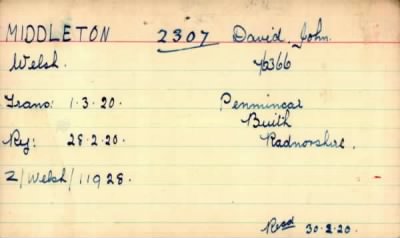 MIDDLETON 2307 David John.
Welsh. 76366
Trans: 1.3.20. Penmincae
Rej: 28.2.20. Builth
Radnorshire.
Z/Welsh/11928.
Recd 30.2.20.